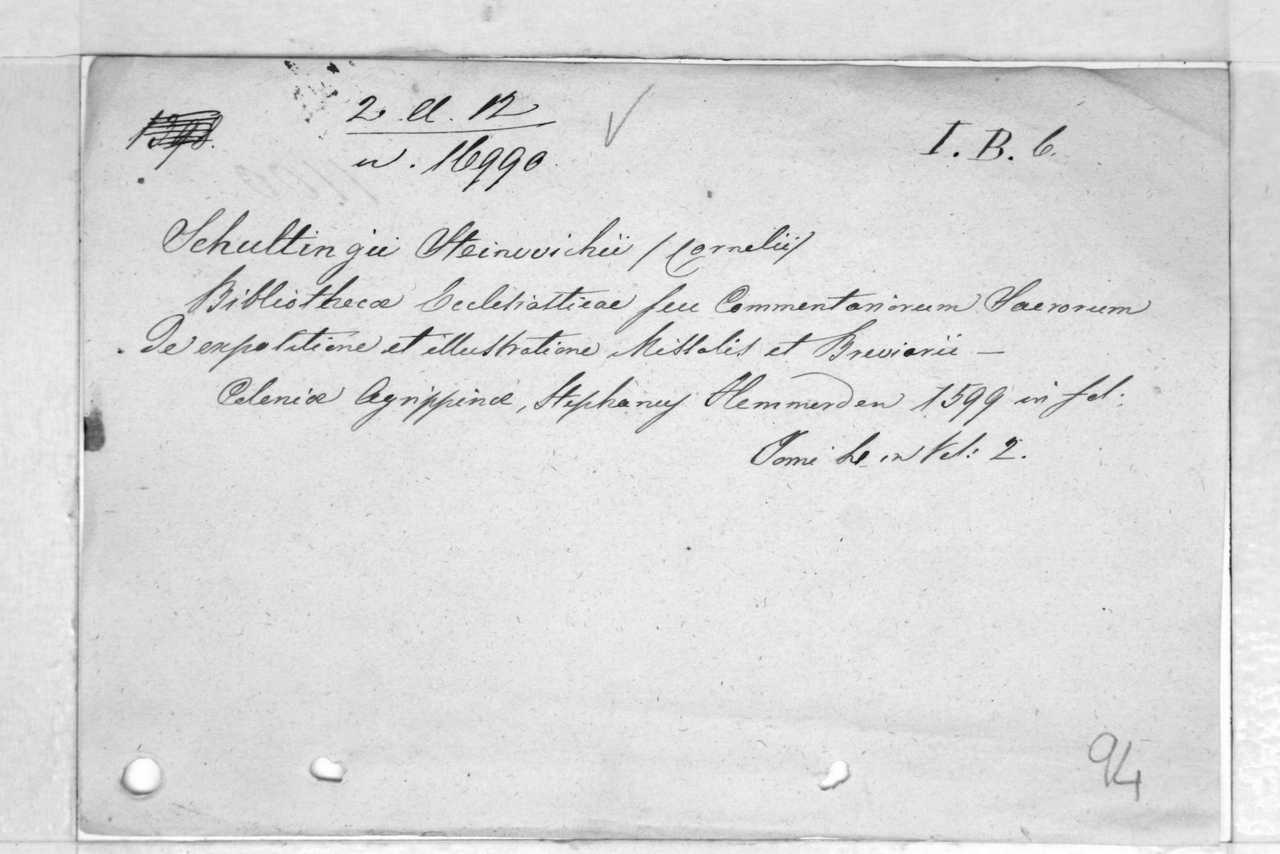 2. A. 12 I. B. 6.
n. 16990
Schultingii Steinwichii /Cornelii/
Bibliothecæ Ecclesiasticae seu Commentariorum Sacrorum
De expositione et illustratione Missalis et Breviarii —
Coloniæ Agrippinæ, Stephanus Hemmerden 1599 in fol:
Tomi in Vol: 2.
94